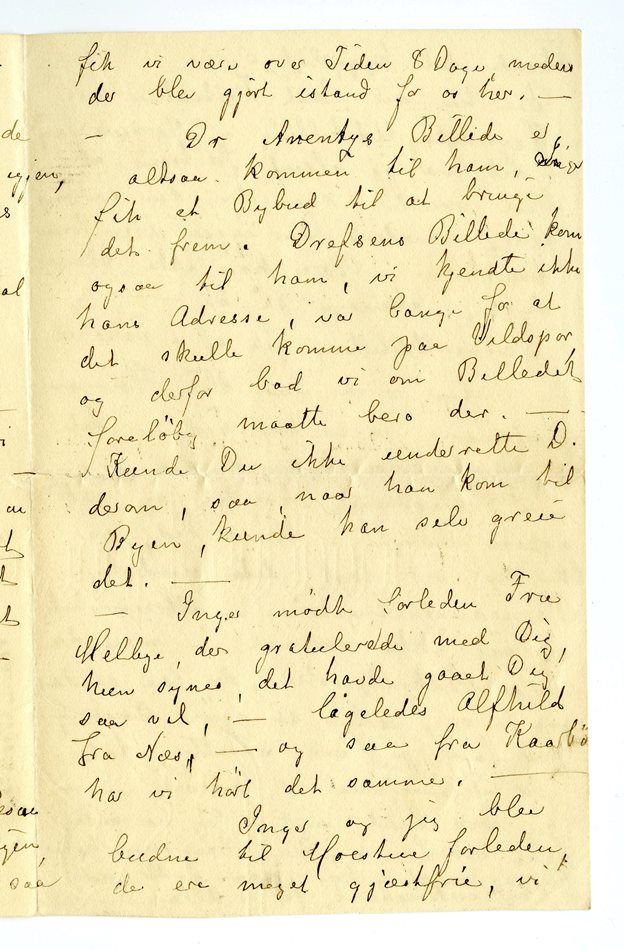 fik vi være over Tiden 8 Dage, medens
der blev gjort istand for os her. —
— Dr Arentys Billede er
altsaa kommen til ham,
fik et Bybud til at bringe
det frem. Drefsens Billede kom
ogsaa til ham, vi kjendte ikke
hans Adresse, var bange for at
det skulle komme paa Vildspor
og derfor bad vi om Billedet
foreløbig maatte bero der. —
Kunde Du ikke underrette D.
derom, saa, naar han kom til
Byen, kunde han selv greie
det. —
— Inger mødte forleden Frue
Mellbye, der gratulerede med Dig,
hun synes, det havde gaaet Dig
saa vel, — ligeledes Alfhild
fra Næs, — og saa fra Kaarbö
har vi hørt det samme. —
Inger og jeg blev
budne til Moestue forleden,
de ere meget gjæstfrie, vi
de
igjen,
al
au
saa